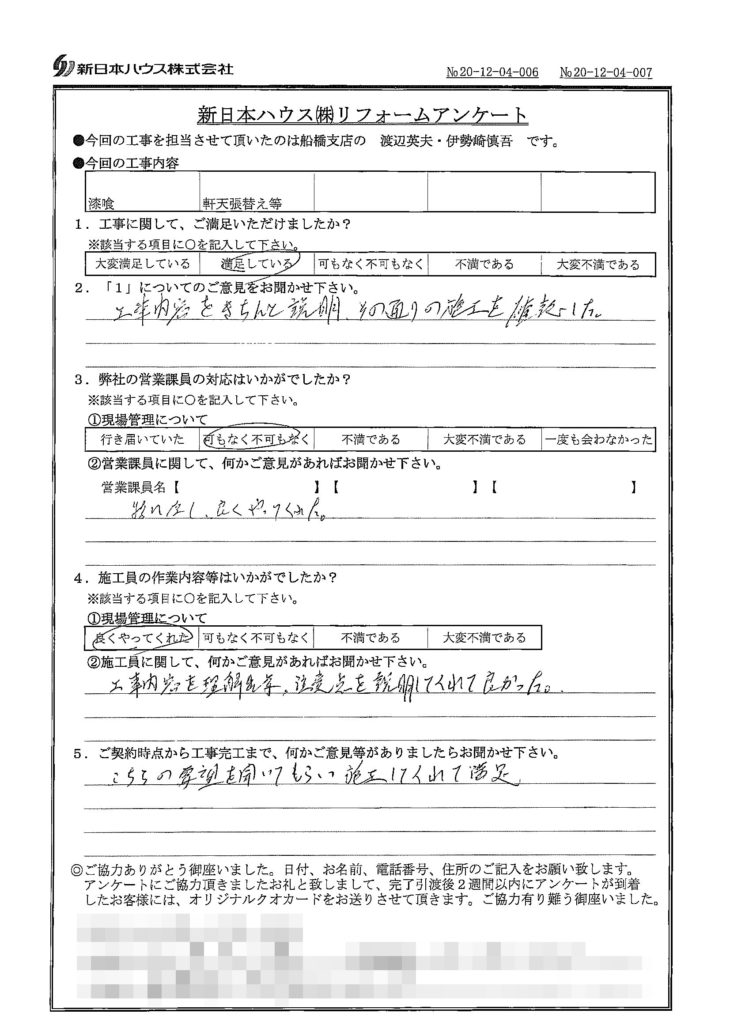 新日本ハウス株式会社
№20-12-04-006 №20-12-04-007
新日本ハウス㈱リフォームアンケート
●今回の工事を担当させて頂いたのは船橋支店の 渡辺英夫・伊勢崎慎吾 です。
●今回の工事内容
漆喰 軒天張替え等
1．工事に関して、ご満足いただけましたか？
※該当する項目に○を記入して下さい。
大変満足している 満足している 可もなく不可もなく 不満である 大変不満である
2．「1」についてのご意見をお聞かせ下さい。
工事内容をきちんと説明、その通りの施工を確認した。
3．弊社の営業課員の対応はいかがでしたか？
※該当する項目に○を記入して下さい。
①現場管理について
行き届いていた 可もなく不可もなく 不満である 大変不満である 一度も会わなかった
②営業課員に関して、何かご意見があればお聞かせ下さい。
営業課員名【 】【 】【 】
特になし、良くやってくれた。
4．施工員の作業内容等はいかがでしたか？
※該当する項目に○を記入して下さい。
①現場管理について
良くやってくれた 可もなく不可もなく 不満である 大変不満である
②施工員に関して、何かご意見があればお聞かせ下さい。
工事内容を理解出来、注意点を説明してくれて良かった。
5．ご契約時点から工事完工まで、何かご意見等がありましたらお聞かせ下さい。
こちらの要望を聞いてもらい施工してくれて満足
◎ご協力ありがとう御座いました。日付、お名前、電話番号、住所のご記入をお願い致します。
アンケートにご協力頂きましたお礼と致しまして、完了引渡後2週間以内にアンケートが到着
したお客様には、オリジナルクオカードをお送りさせて頂きます。ご協力有り難う御座いました。